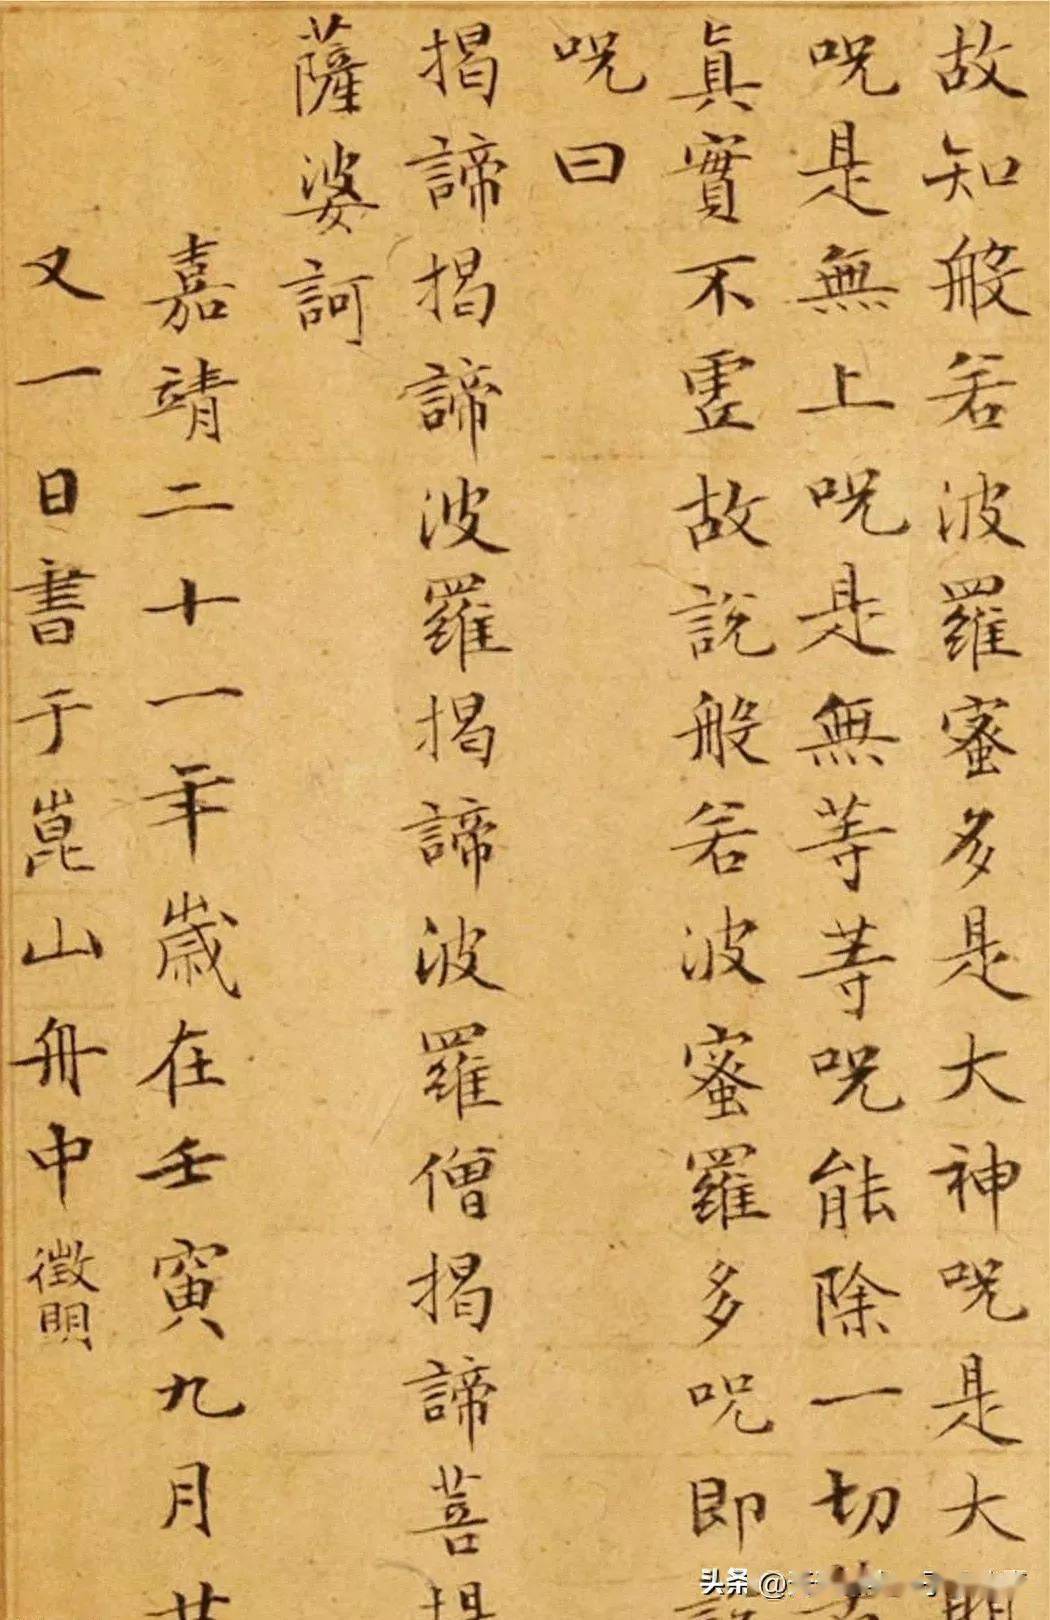 故知般若波羅蜜多是大神呪是大明
呪是無上呪是無等等呪能除一切苦
眞實不虛故說般若波蜜羅多呪即說
呪曰
揭諦揭諦波羅揭諦波羅僧揭諦菩提
薩婆訶
嘉靖二十一年歲在壬寅九月廿
又一日書于崑山舟中徵明
头条 @